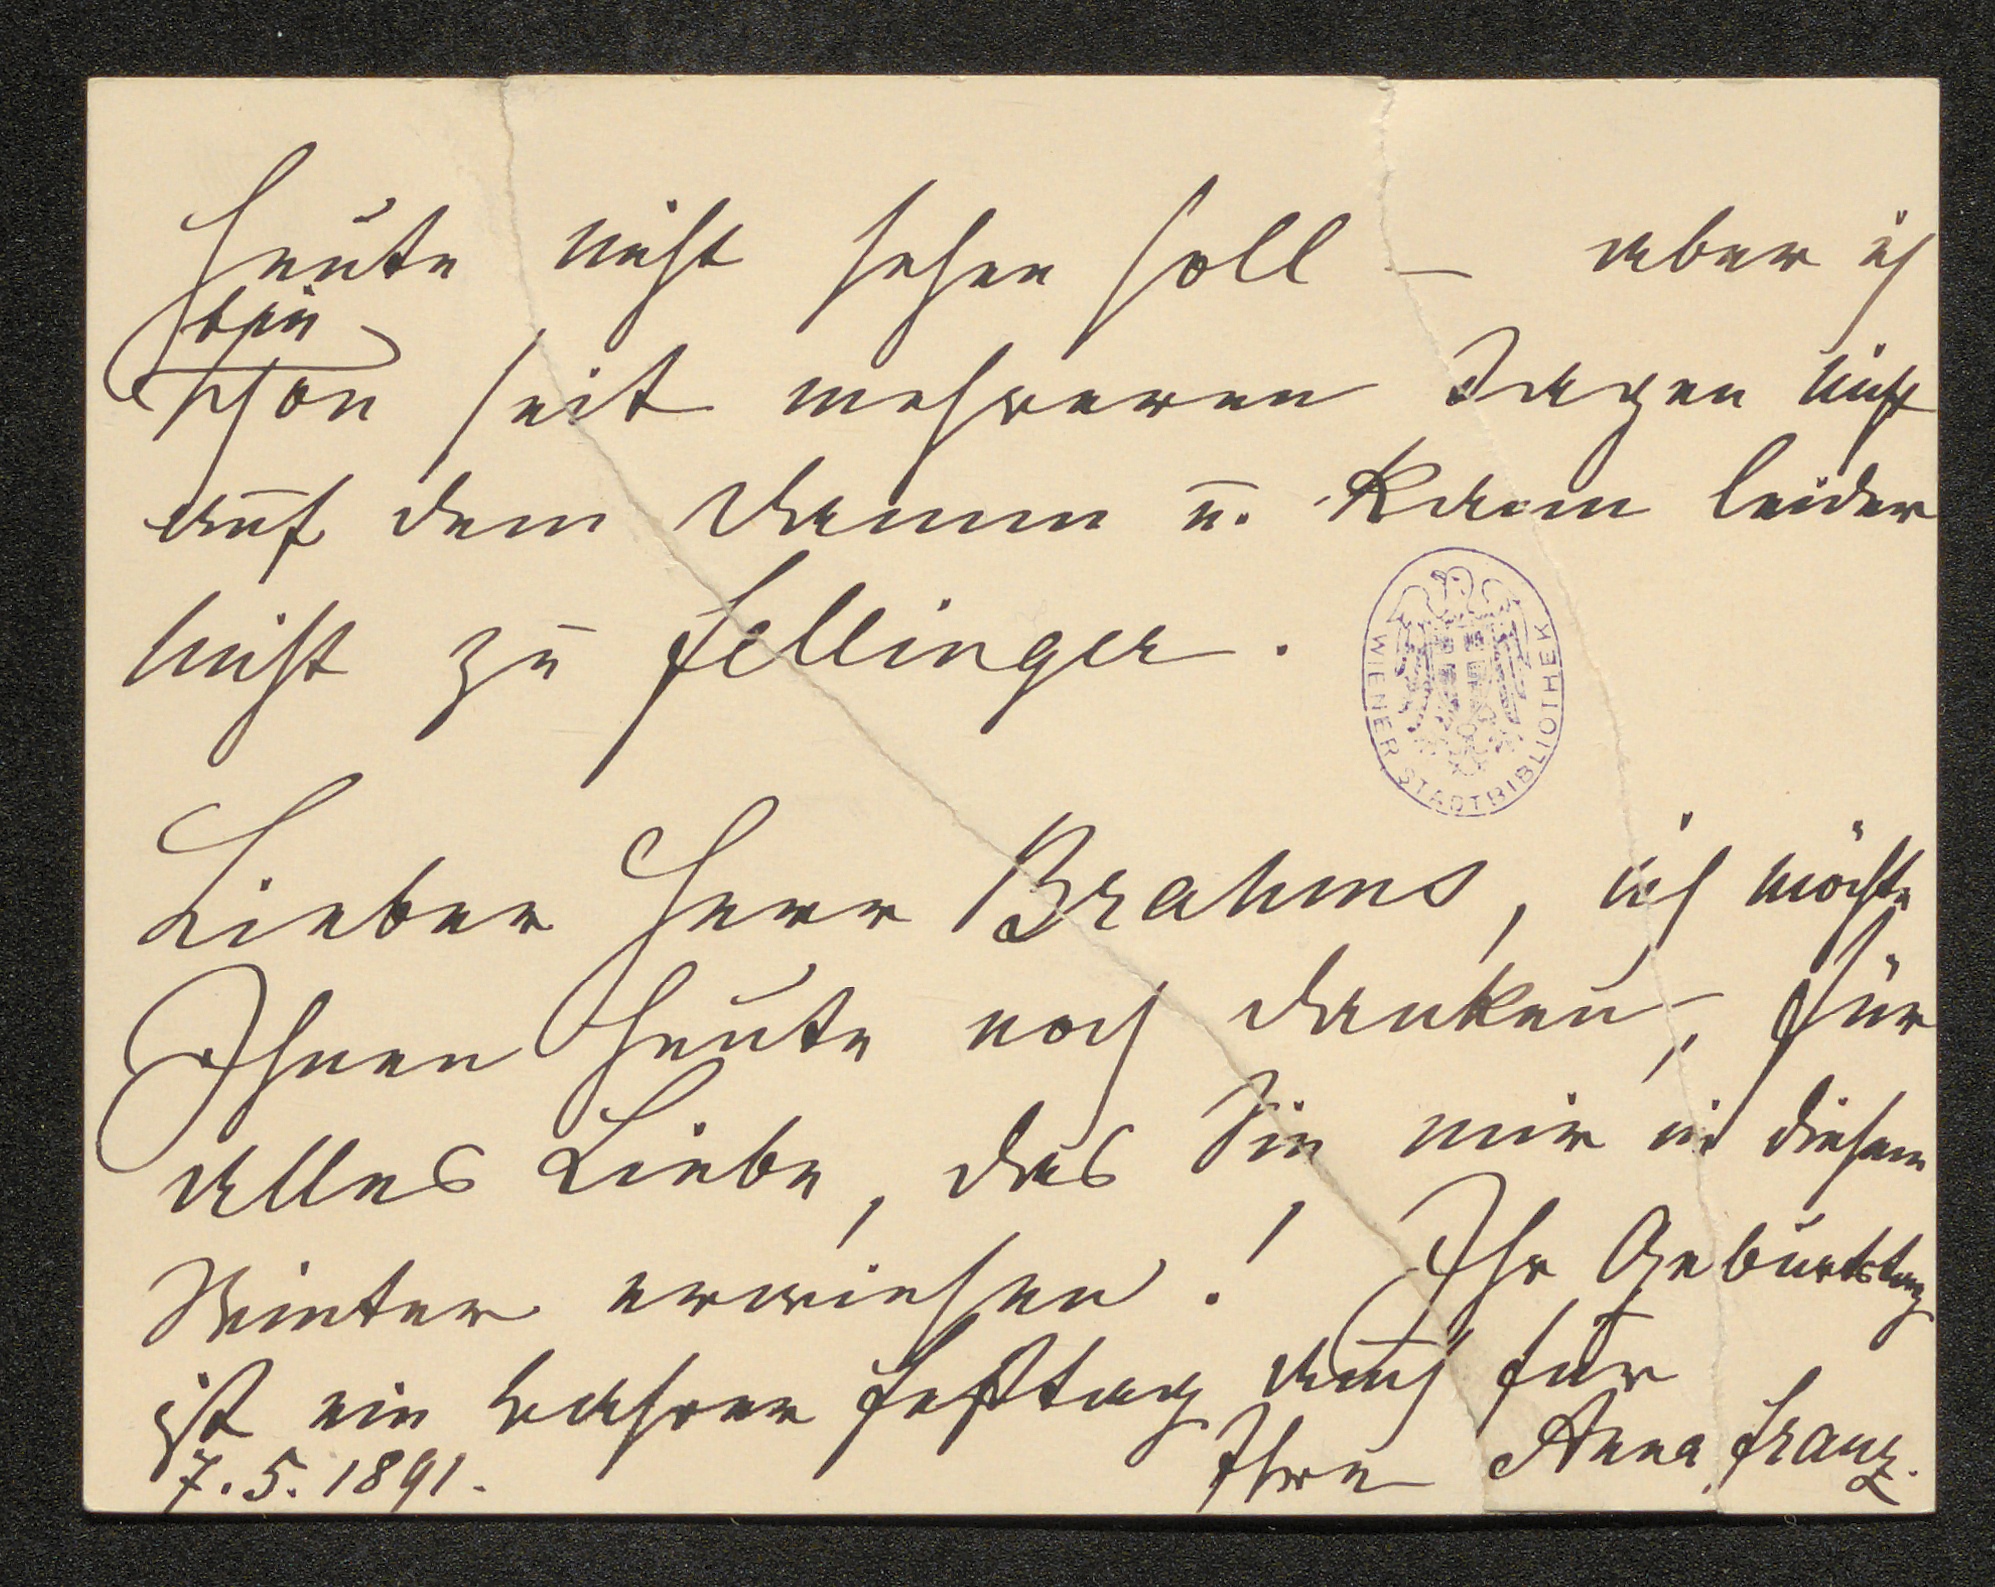 heute nicht sehen soll – aber ich
bin
schon seit mehreren Tagen nicht
auf dem Damm u. kann leider
nicht zu Fellinger.
WIENER STADTBIBLIOTHEK
Lieber Herr Brahms, ich möchte
Ihnen heute noch danken, für
alles Liebe, das Sie mir in diesem
Winter erwiesen! Ihr Geburtstag
ist ein wahrer Festtag auch für
7.5.1891. Ihre Anna Franz.